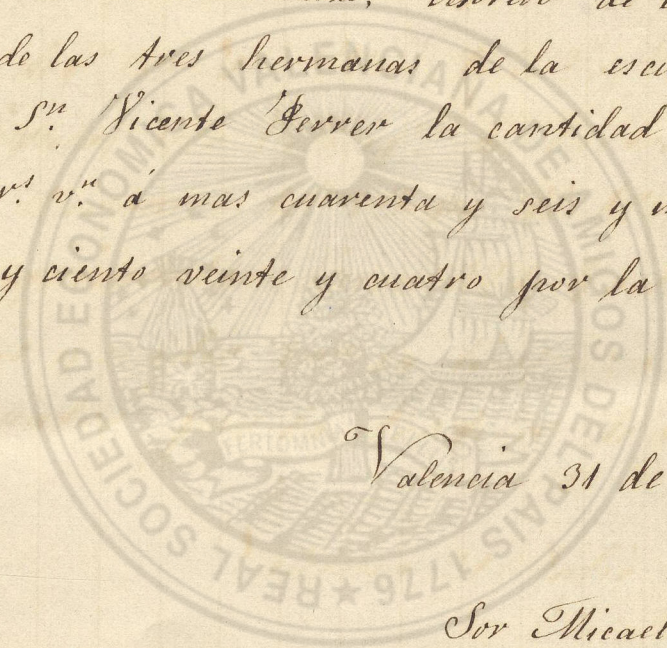 de las tres hermanas de la esc
Sn. Vicente Ferrer la cantidad
rs. vn. á mas cuarenta y seis y
y ciento veinte y cuatro por la
Valencia 31 de
Sor Micael
REAL SOCIEDAD ECONOMICA VALENCIANA DE AMIGOS DEL PAIS 1776 ★